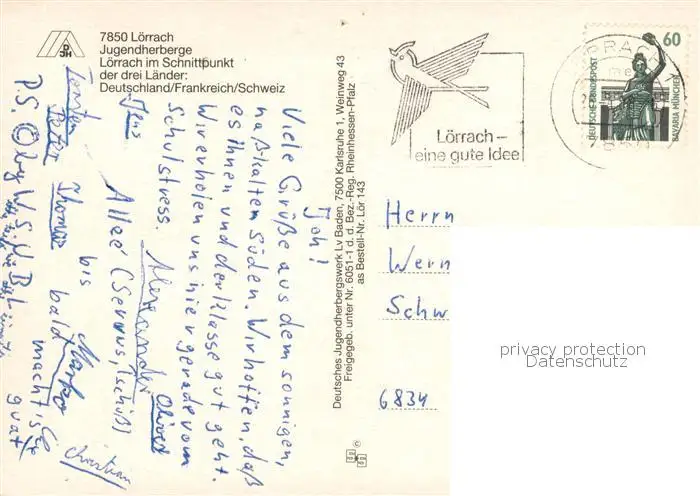 7850 Lörrach
Jugendherberge
Lörrach im Schnittpunkt
der drei Länder:
Deutschland/Frankreich/Schweiz
DJH
Joh!
Viele Grüße aus dem sonnigen,
naßkalten Süden. Wir hoffen, daß
es Ihnen und der Klasse gut geht.
Wir erholen uns hier gerade vom
Schulstress.
Allaé (Servus, tschüß)
bis bald
macht's guat
Jens
Alexander
Oliver
Torsten
Peter
Thomas
Marko
Christian
P.S.
Deutsches Jugendherbergswerk Lv Baden, 7500 Karlsruhe 1, Weinweg 43
Freigegeb. unter Nr. 6051-1 d. d. Bez.-Reg. Rheinhessen-Pfalz
as Bestell-Nr. Lör 143
Lörrach –
eine gute Idee
60
DEUTSCHE BUNDESPOST
BAVARIA MÜNCHEN
Herrn
Wern
Schw
6834
privacy protection
Datenschutz
©